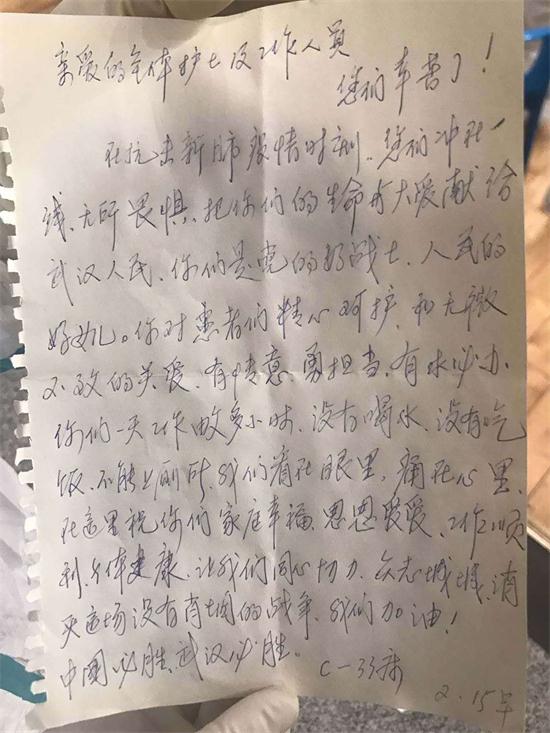 亲爱的全体护士及工作人员
您们辛苦了！
在抗击新肺疫情时刻。您们冲在一
线、无所畏惧、把你们的生命与大爱献给
武汉人民、你们是党的好战士、人民的
好女儿。你对患者们精心呵护、和无微
不致的关爱、有情意、勇担当、有求必办、
你们一天工作数多小时、没有喝水、没有吃
饭、不能上厕所、我们看在眼里，痛在心里、
在这里祝你们家庭幸福、恩恩爱爱、工作顺
利、身体健康、让我们同心协力、众志成城、消
灭这场没有硝烟的战争、我们加油！
中国必胜、武汉必胜。
C-33床
2.15早